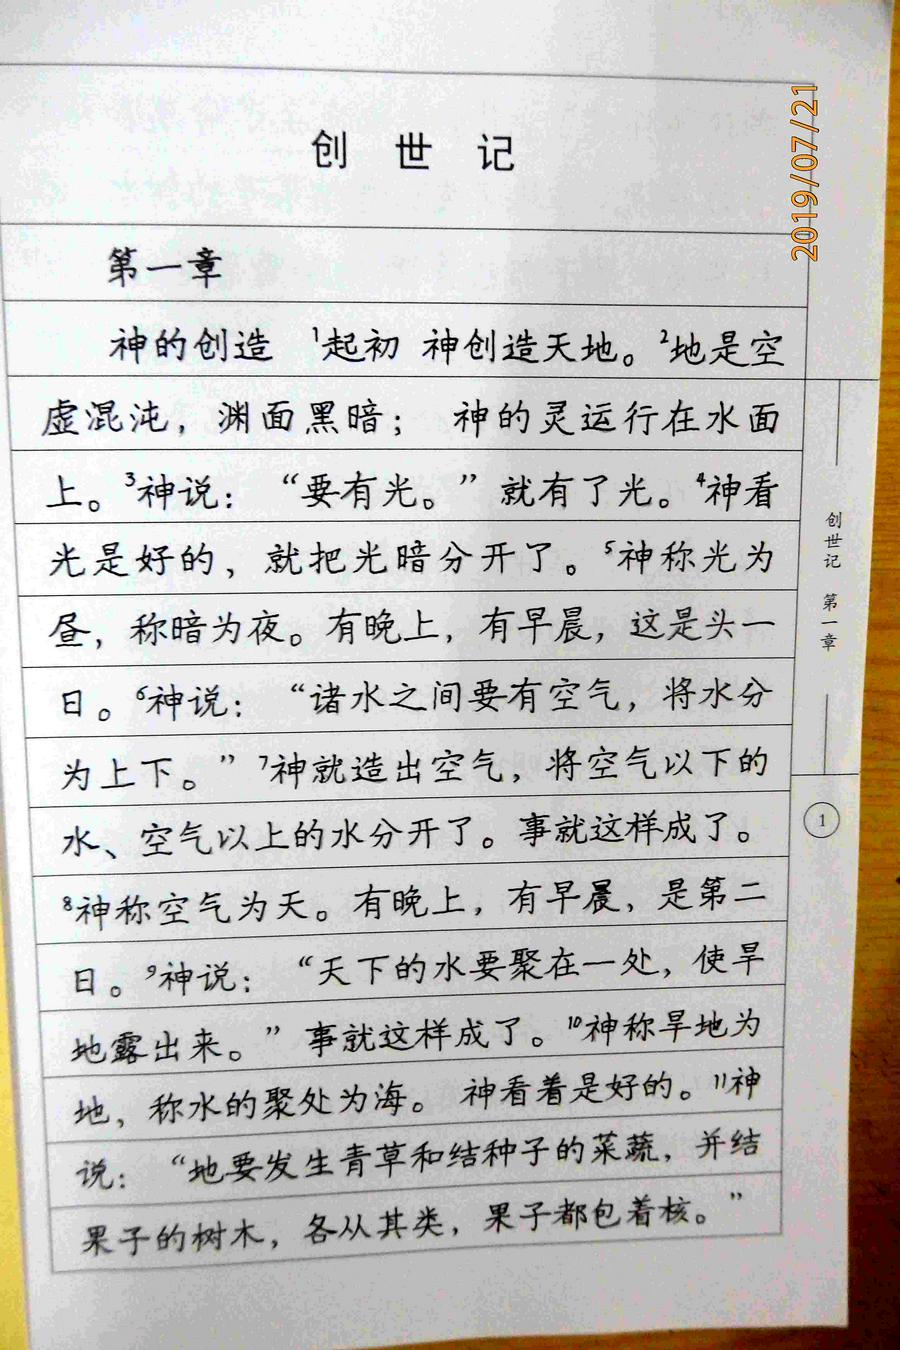 创世记
2019/07/21
第一章
神的创造 ¹起初 神创造天地。²地是空
虚混沌，渊面黑暗； 神的灵运行在水面
上。³神说：“要有光。”就有了光。⁴神看
光是好的，就把光暗分开了。⁵神称光为
昼，称暗为夜。有晚上，有早晨，这是头一
日。⁶神说：“诸水之间要有空气，将水分
为上下。”⁷神就造出空气，将空气以下的
水、空气以上的水分开了。事就这样成了。
⁸神称空气为天。有晚上，有早晨，是第二
日。⁹神说：“天下的水要聚在一处，使旱
地露出来。”事就这样成了。¹⁰神称旱地为
地，称水的聚处为海。 神看着是好的。¹¹神
说：“地要发生青草和结种子的菜蔬，并结
果子的树木，各从其类，果子都包着核。”
创世记 第一章
1